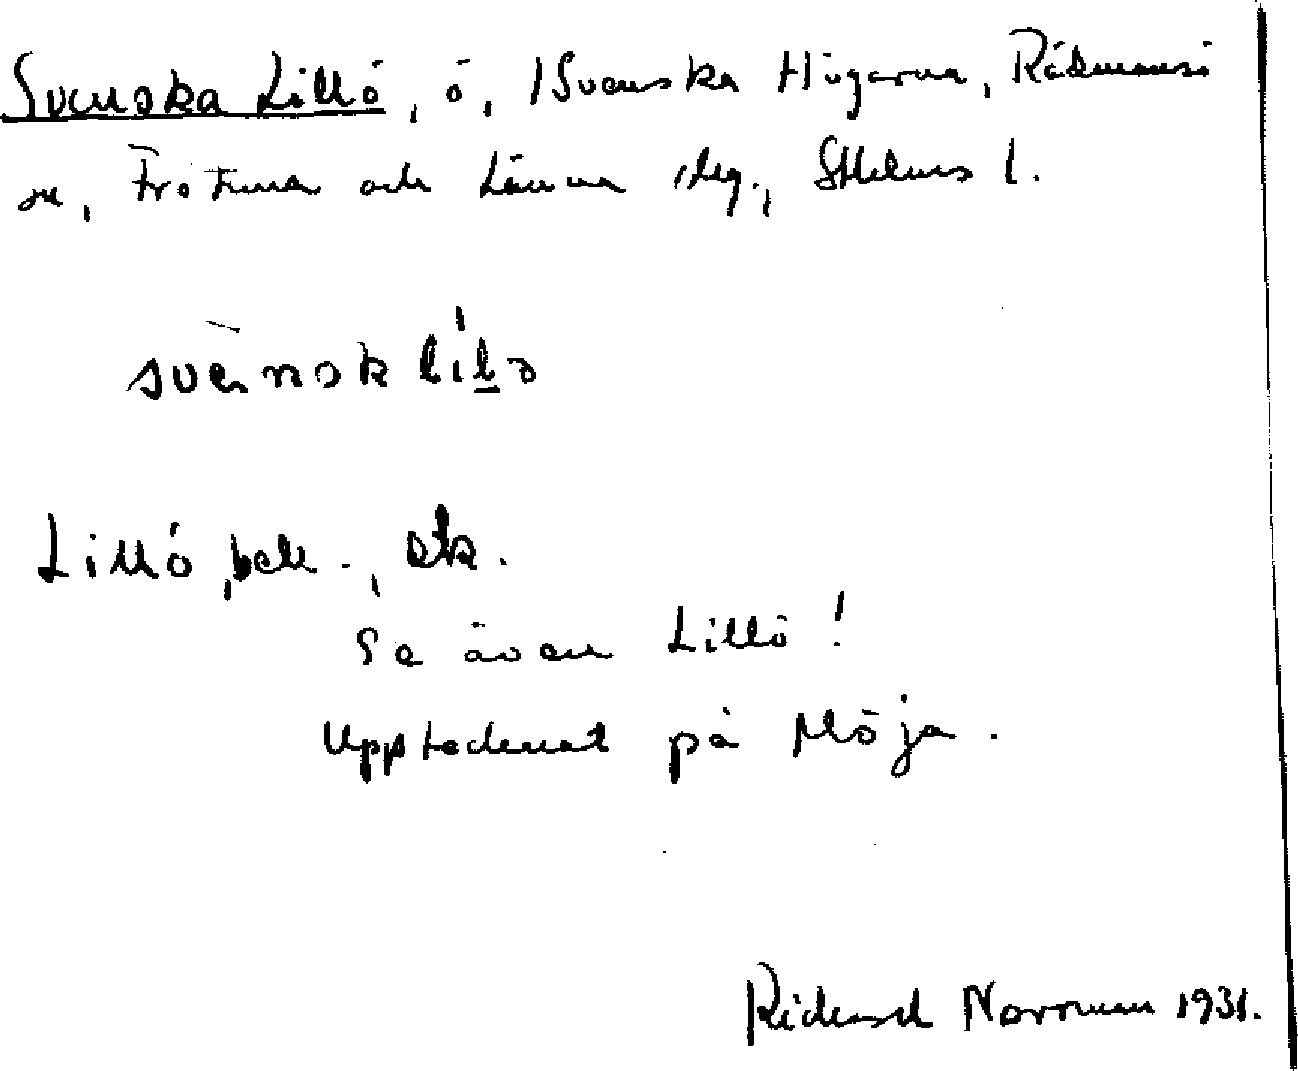 Svenska Lillö, ö, i Svenska Högarna, Rådmansö
sn, Frötuna och Länna slg., Sthlms l.
svensk lilö
Lillö, bek., sk.
Se även Lillö!
Upptecknat på Möja.
Rickard Norrman 1931.